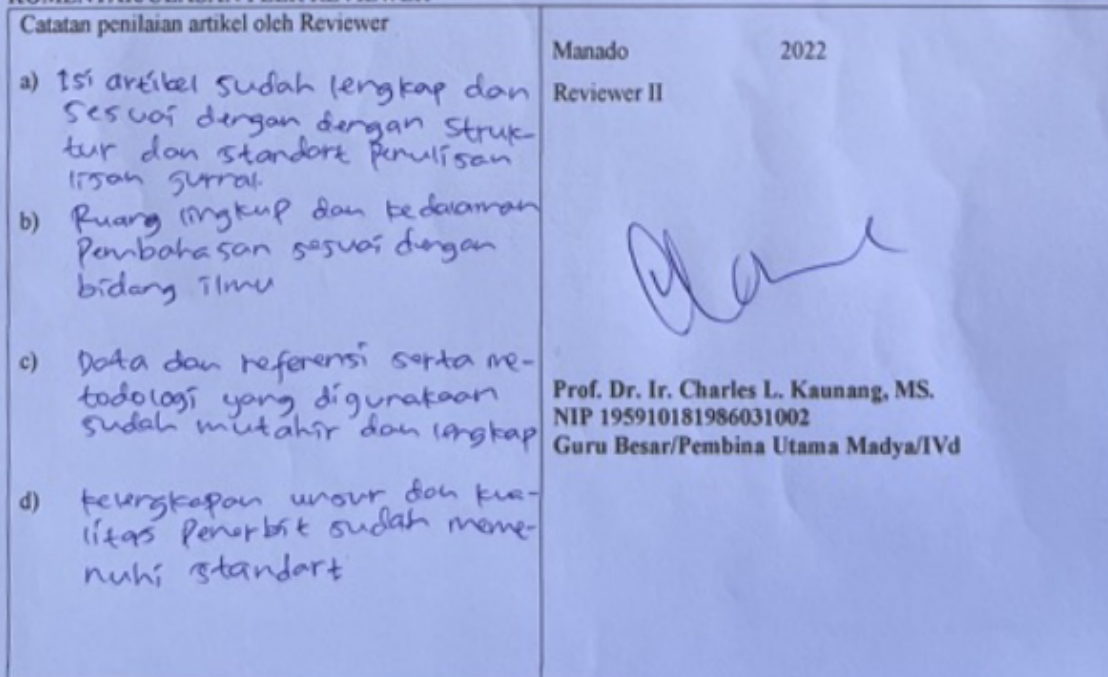 Catatan penilaian artikel oleh Reviewer
a) Isi artikel sudah lengkap dan
sesuai dengan dengan struk-
tur dan standart penulisan
b) Ruang lingkup dan kedalaman
Pembahasan sesuai dengan
bidang ilmu
c) Data dan referensi serta me-
todologi yang digunakaan
sudah mutahir dan lengkap
d) kelengkapan unsur dan kua-
litas Penerbit sudah meme-
nuhi standart
Manado 2022
Reviewer II
Prof. Dr. Ir. Charles L. Kaunang, MS.
NIP 195910181986031002
Guru Besar/Pembina Utama Madya/IVd